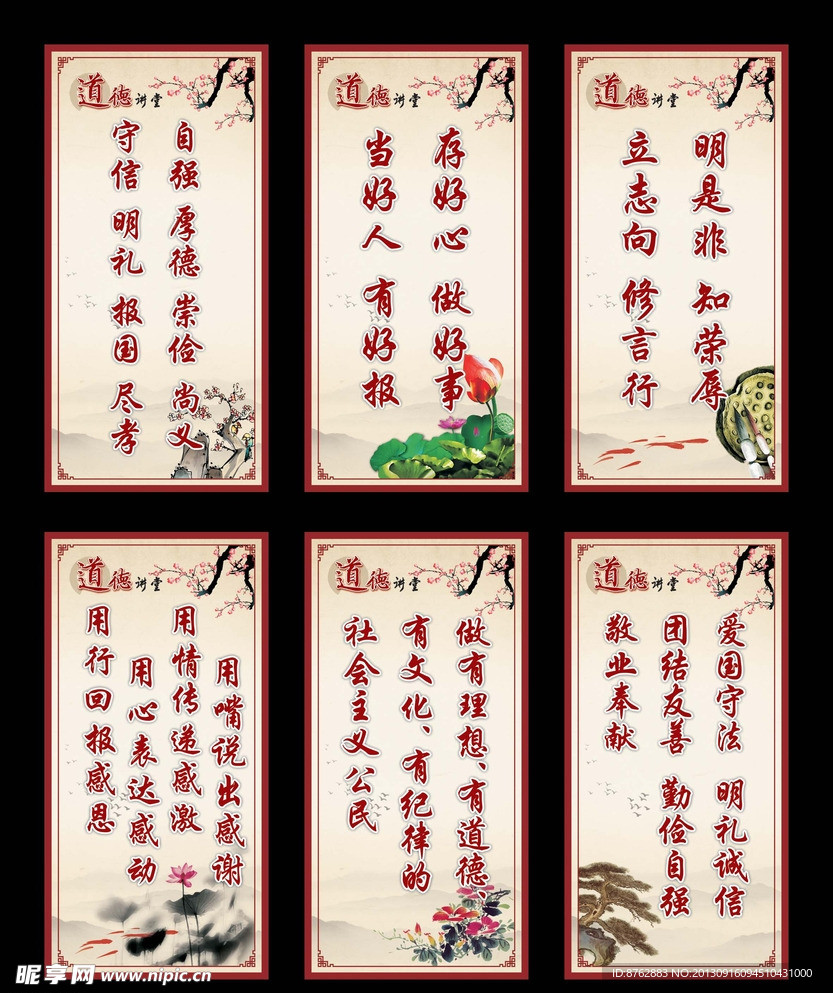 道德讲堂
自强 厚德 崇俭 尚义
守信 明礼 报国 尽孝
道德讲堂
存好心 做好事
当好人 有好报
道德讲堂
明是非 知荣辱
立志向 修言行
道德讲堂
用嘴说出感谢
用情传递感激
用心表达感动
用行回报感恩
道德讲堂
做有理想、有道德、
有文化、有纪律的
社会主义公民
道德讲堂
爱国守法 明礼诚信
团结友善 勤俭自强
敬业奉献
昵享网 www.nipic.cn
ID:8762883 NO:20130916094510431000